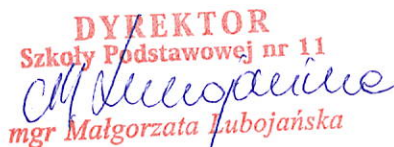 DYREKTOR
Szkoły Podstawowej nr 11
mgr Małgorzata Lubojańska